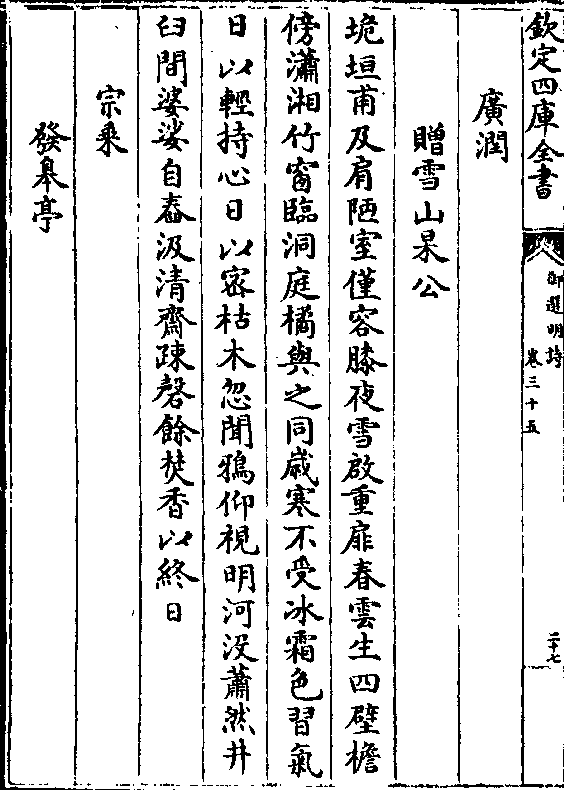 欽定四庫全書
御選明詩
卷三十五
二十七
廣潤
贈雪山杲公
垝垣甫及肩陋室僅容膝夜雪啟重扉春雲生四壁檐
傍瀟湘竹窗臨洞庭橘與之同歲寒不受冰霜色習氣
日以輕持心日以密枯木忽聞鴉仰視明河沒蕭然井
臼間婆娑自舂汲清齋疎磬餘焚香以終日
宗乘
發皋亭